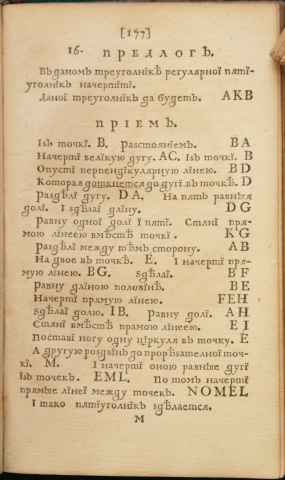 [157]
16. ПРЕДЛОГЪ.
Въ даномъ треуголнїкѣ регулярної пятї-
уголнїкъ начертїтї.
Даної треуголнїкъ да будетъ. AKB
ПРІЕМЪ.
Ізъ точкї. B. разстоянїемъ. BA
Начертї велїкую дугу. AC. Ізъ точкї. B
Опустї перпендїкулярную лїнею. BD
Которая доткнется до дугї въ точкѣ. D
Раздѣлї дугу. DA. На пять равныя
долї. І здѣлаї длїну. DG
Равну одної долї ї пятї. Стянї пря-
мою лїнеею вмѣстѣ точкї. KG
Раздѣлї между тѣмъ сторону. AB
На двое въ точкѣ. E. І начертї пря-
мую лїнею. BG. здѣлаї. BF
Равну длїною половїнѣ. BE
Начертї прямую лїнею. FEH
здѣлаї долю. IB. Равну долї. AH
Стянї вмѣстѣ прамою лїнеею. EI
Поставї ногу одну цїркуля въ точку. E
А другую роздвїнь до прорѣзателної точ-
кї. M. І начертї оною равные дугї
їзъ точекъ. EML. По томъ начертї
прямые лїнеї между точекъ. NOMEL
І тако пятїуголнїкъ здѣлается.
M